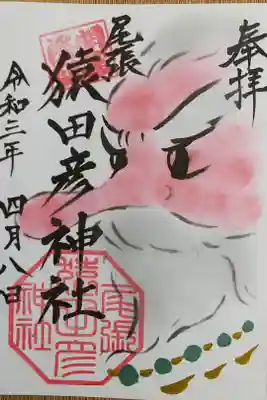 奉拝
尾張
猿田彦神社
令和三年
四月八日
尾張
猿田彦
神社